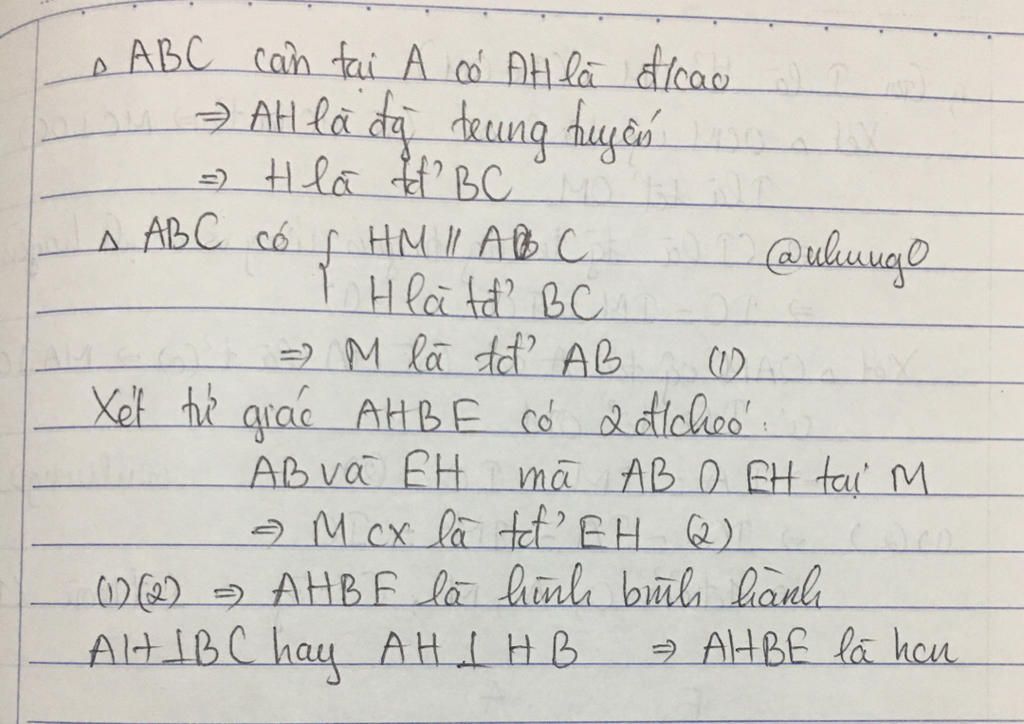 Δ ABC cân tại A có AH là đ/cao
⇒ AH là đg trung tuyến
⇒ H là tđ' BC
Δ ABC có { HM // AC @nhung0
H là tđ' BC
⇒ M là tđ' AB (1)
Xét tứ giác AHBE có 2 đ/chéo:
AB và EH mà AB ∩ EH tại M
⇒ M cx là tđ' EH (2)
(1)(2) ⇒ AHBE là hình bình hành
AH ⊥ BC hay AH ⊥ HB ⇒ AHBE là hcn